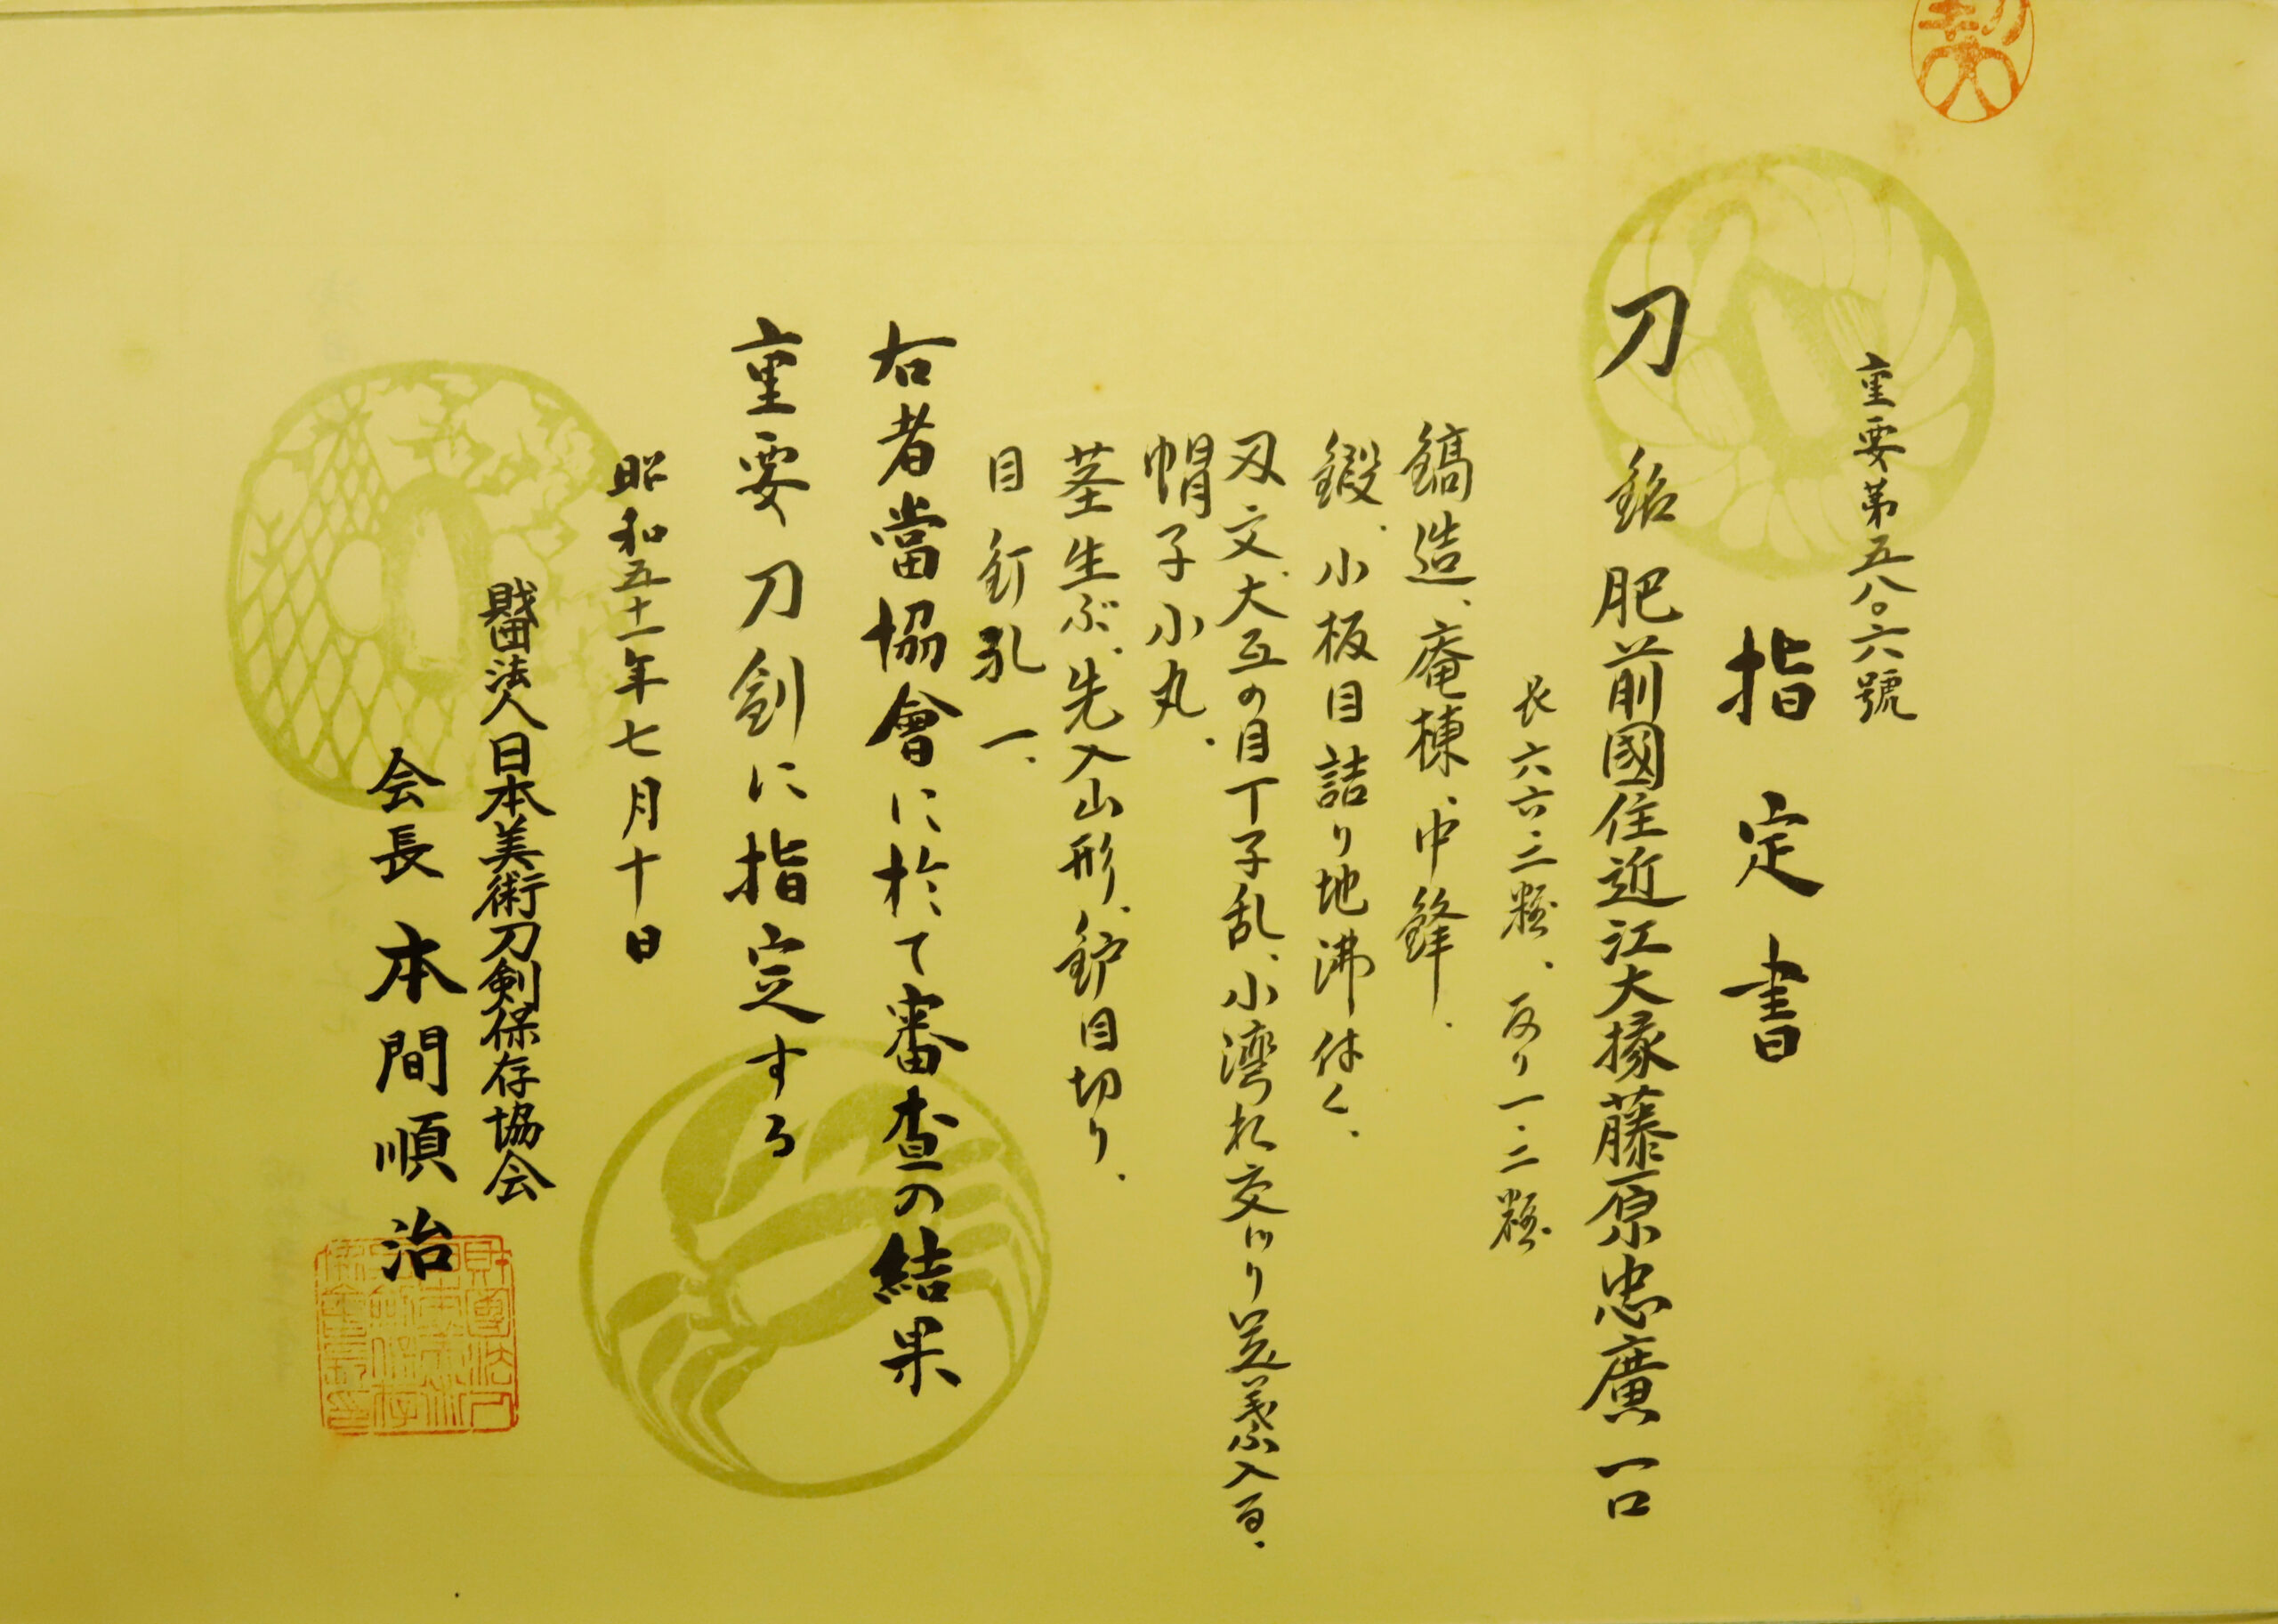 重要第五八〇六號
指定書
刀 銘 肥前國住近江大掾藤原忠廣 一口
長六六・三糎、反り一・二糎
鎬造、庵棟、中鋒、
鍛、小板目詰り地沸付く、
刃文、大互の目丁子乱、小湾れ交り、足葉入る、
帽子小丸、
茎生ぶ、先入山形、鑢目切り、
目釘孔一、
右者當協會に於て審査の結果
重要刀剣に指定する
昭和五十一年七月十日
財團法人日本美術刀剣保存協会
会長 本間順治